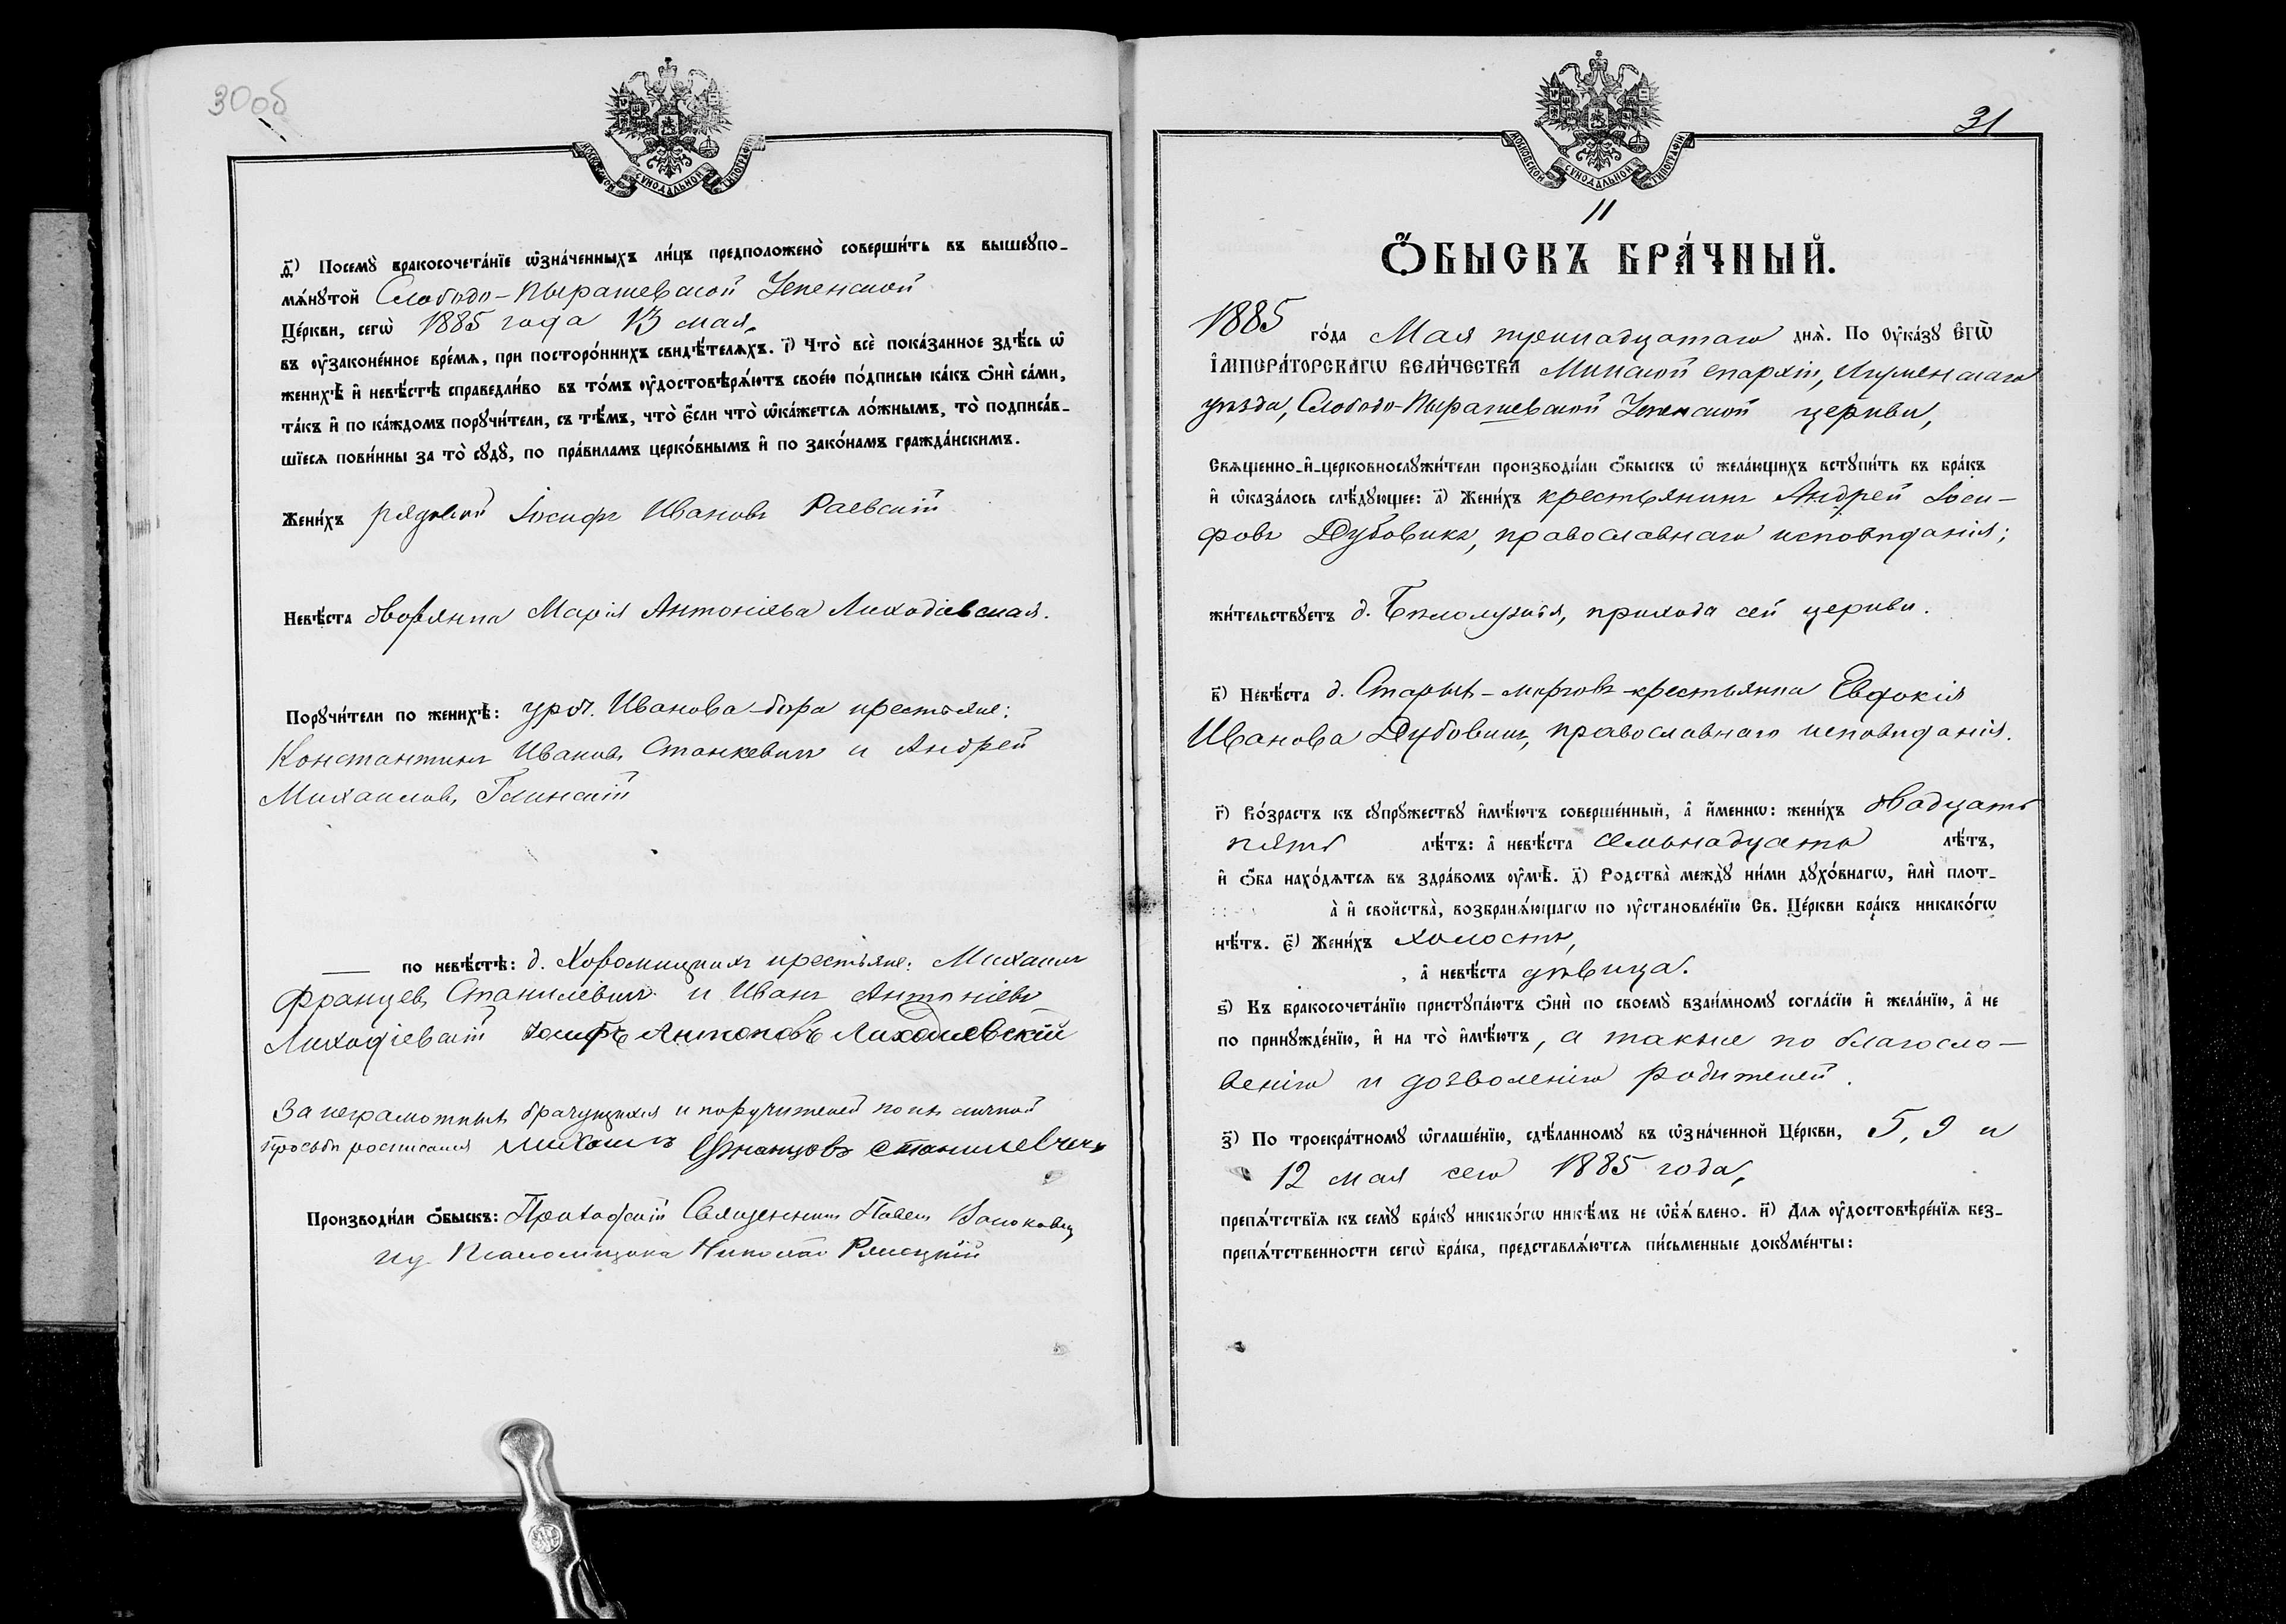 30об
МОСКОВСКОЙ СѴНОДАЛЬНОЙ ТИПОГРАФІИ
д҃) Посемꙋ̀ бракосочета́нїе ѡ҆зна́ченныхъ ли́цъ предположено̀ соверши́ть въ вышеꙋпо-
мѧ́нꙋтой Слободо-Пырашевской Успенской
Це́ркви, сегѡ̀ 1885 года 13 мая,
въ ᲂу҆законе́нное вре́мѧ, при посторо́ннихъ свидѣ́телѧхъ. і҃) Что̀ всѐ пока́занное здѣ́сь ѡ҆
женихѣ̀ и҆ невѣ́стѣ справедли́во въ то́мъ ᲂу҆достовѣрѧ́ютъ свое́ю по́дписью ка́къ ѻ҆нѝ са́ми,
та́къ и҆ по ка́ждомъ порꙋчи́тели, съ тѣ́мъ, что̀ є҆́сли что̀ ѡ҆ка́жетсѧ ло́жнымъ, то̀ подписа́в-
шїесѧ пови́нны за то̀ сꙋдꙋ̀, по пра́виламъ церко́внымъ и҆ по зако́намъ гражда́нскимъ.
Жени́хъ рядовой Іосифъ Ивановъ Раевскій
Невѣ́ста дворянка Марія Антоніева Лиходіевская.
Порꙋчи́тели по женихѣ̀: уроч. Иванова-бора крестьяне:
Константинъ Ивановъ Станкевичъ и Андрей
Михаиловъ Глинскій
— по невѣ́стѣ: д. крестьяне: Михаилъ
Францевъ Станилевичъ и Иванъ Антоніевъ
Лиходіевскій Іосифъ Антоновъ Лиходиевскій
За неграмотныхъ брачущихся и поручителей по ихъ личной
просьбѣ росписался Михаилъ Францовъ Станилевичъ
Производи́ли ѻ҆́быскъ: Приходскій Священникъ Павелъ
ид. Псаломщика Николай
31
МОСКОВСКОЙ СѴНОДАЛЬНОЙ ТИПОГРАФІИ
11
Ѻ҆́БЫСКЪ БРА́ЧНЫЙ.
1885 го́да Мая тринадцатаго днѧ̀. По Оу҆ка́зꙋ Є҆гѡ̀
І҆мпера́торскагѡ вели́чества Минской епархіи, Игуменскаго
уѣзда, Слободо-Пырашевской Успенской церкви,
Свѧщенно-и҆-церковнослꙋжи́тели производи́ли ѻ҆́быскъ ѡ҆ жела́ющихъ встꙋпи́ть въ бра́къ
и҆ ѡ҆каза́лось слѣ́дꙋющее: а҃) Жени́хъ крестьянинъ Андрей Іоси-
фовъ Дубовикъ, православнаго исповѣданія;
жи́тельствꙋетъ д. приходa сей церкви.
в҃) Невѣ́ста д. Старые-морговъ крестьянка Евдокія
Иванова Дубовикъ, православнаго исповѣданія.
г҃) Во́зрастъ къ сꙋпрꙋ́жествꙋ и҆мѣ́ютъ соверше́нный, а҆ и҆́меннѡ: жени́хъ двадцать
пять лѣ́тъ: а҆ невѣ́ста семьнадцать лѣ́тъ,
и҆ ѻ҆́ба нахо́дѧтсѧ въ здра́вомъ ᲂу҆мѣ̀. д҃) Родства̀ междꙋ̀ ни́ми дꙋхо́внагѡ, и҆лѝ плот-
а̀ и҆ свойства̀, возбранѧ́ющагѡ по ᲂу҆становле́нїю Св. Це́ркви бра́къ никако́гѡ
нѣ́тъ. є҃) Жени́хъ холостъ,
, а҆ невѣ́ста дѣвица.
ѕ҃) Къ бракосочета́нїю пристꙋпа́ютъ ѻ҆нѝ по своемꙋ̀ взаи́мномꙋ согла́сїю и҆ жела́нїю, а҆ не
по принꙋжде́нїю, и҆ на то̀ и҆мѣ́ютъ, а также по благосло-
венію и дозволенію родителей.
з҃) По троекра́тномꙋ ѡ҆глаше́нїю, сдѣ́ланномꙋ въ ѡ҆зна́ченной Це́ркви, 5, 9 и
12 мая сего 1885 года,
препѧ́тствїѧ къ семꙋ̀ бра́кꙋ никако́гѡ никѣ́мъ не ѡ҆б̾ѧ́влено. и҃) Длѧ ᲂу҆достовѣре́нїѧ без-
препѧ́тственности сегѡ̀ бра́ка, представлѧ́ютсѧ пи́сьменные докꙋме́нты: